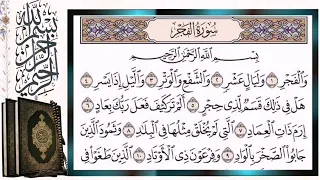 سُورَةُ الفَجْرِ
بِسْمِ اللَّهِ الرَّحْمَٰنِ الرَّحِيمِ
وَالْفَجْرِ ١ وَلَيَالٍ عَشْرٍ ٢ وَالشَّفْعِ وَالْوَتْرِ ٣ وَاللَّيْلِ إِذَا يَسْرِ ٤
هَلْ فِي ذَٰلِكَ قَسَمٌ لِّذِي حِجْرٍ ٥ أَلَمْ تَرَ كَيْفَ فَعَلَ رَبُّكَ بِعَادٍ ٦
إِرَمَ ذَاتِ الْعِمَادِ ٧ الَّتِي لَمْ يُخْلَقْ مِثْلُهَا فِي الْبِلَادِ ٨ وَثَمُودَ الَّذِينَ
جَابُوا الصَّخْرَ بِالْوَادِ ٩ وَفِرْعَوْنَ ذِي الْأَوْتَادِ ١٠ الَّذِينَ طَغَوْا فِي
بسم الله الرحمن الرحيم